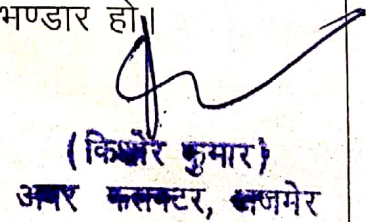 भण्डार हो।
(किशोर कुमार)
अपर कलक्टर, अजमेर